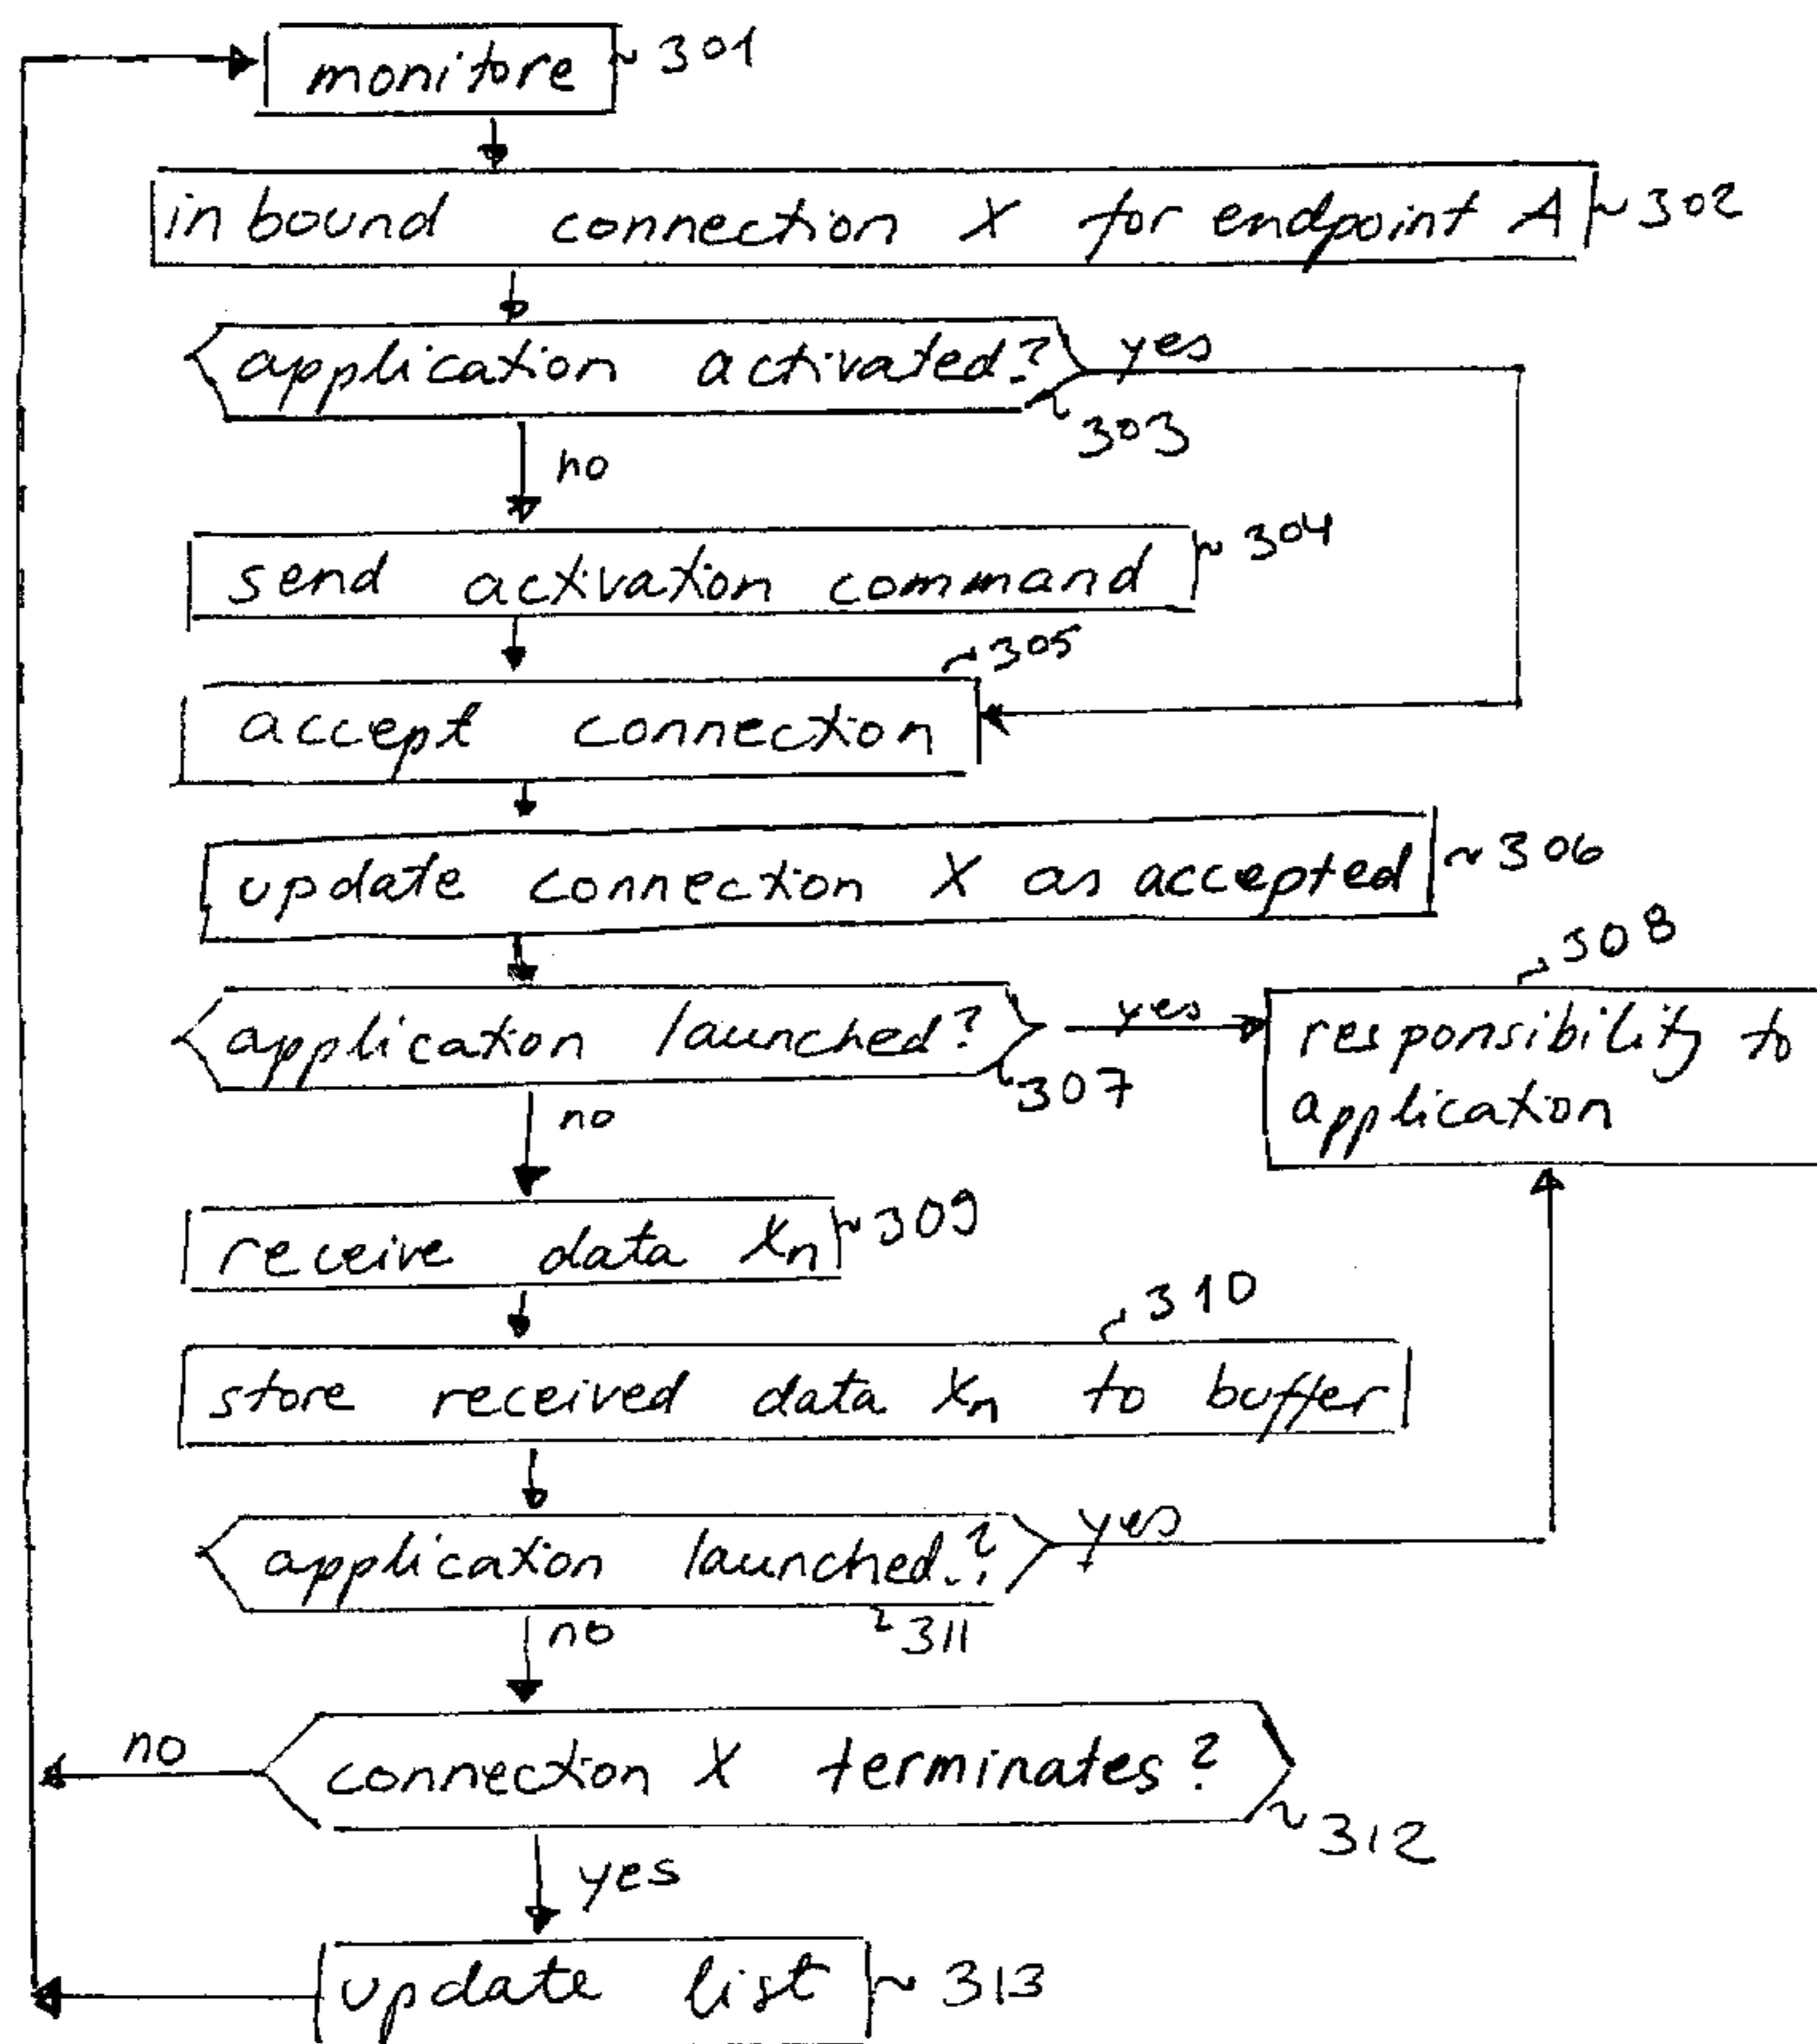 monitore ~ 301
inbound connection X for endpoint A ~ 302
application activated? yes
303
no
send activation command ~ 304
~ 305
accept connection
update connection X as accepted ~ 306
308
application launched? yes
307
responsibility to
application
no
receive data Xn ~ 309
310
store received data Xn to buffer
application launched? yes
no
311
no
connection X terminates?
312
yes
update list ~ 313